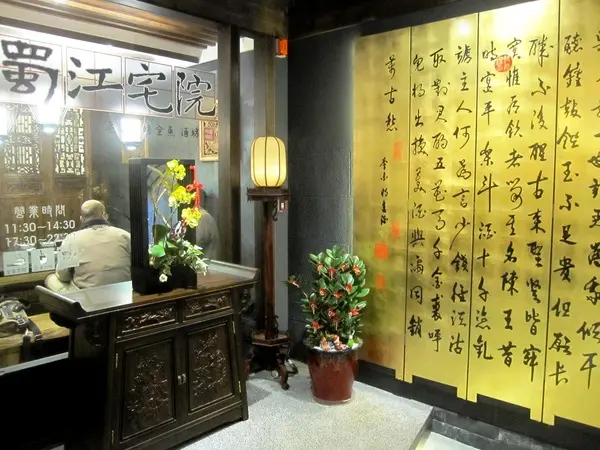 蜀江宅院
營業時間
11:30–14:30
聽鐘鼓饌玉不足貴但願長
醉不復醒古來聖賢皆寂
寞惟有飲者留其名陳王昔
時宴平樂斗酒十千恣歡
謔主人何為言少錢徑須沽
取對君酌五花馬千金裘呼
兒將出換美酒與爾同銷
萬古愁